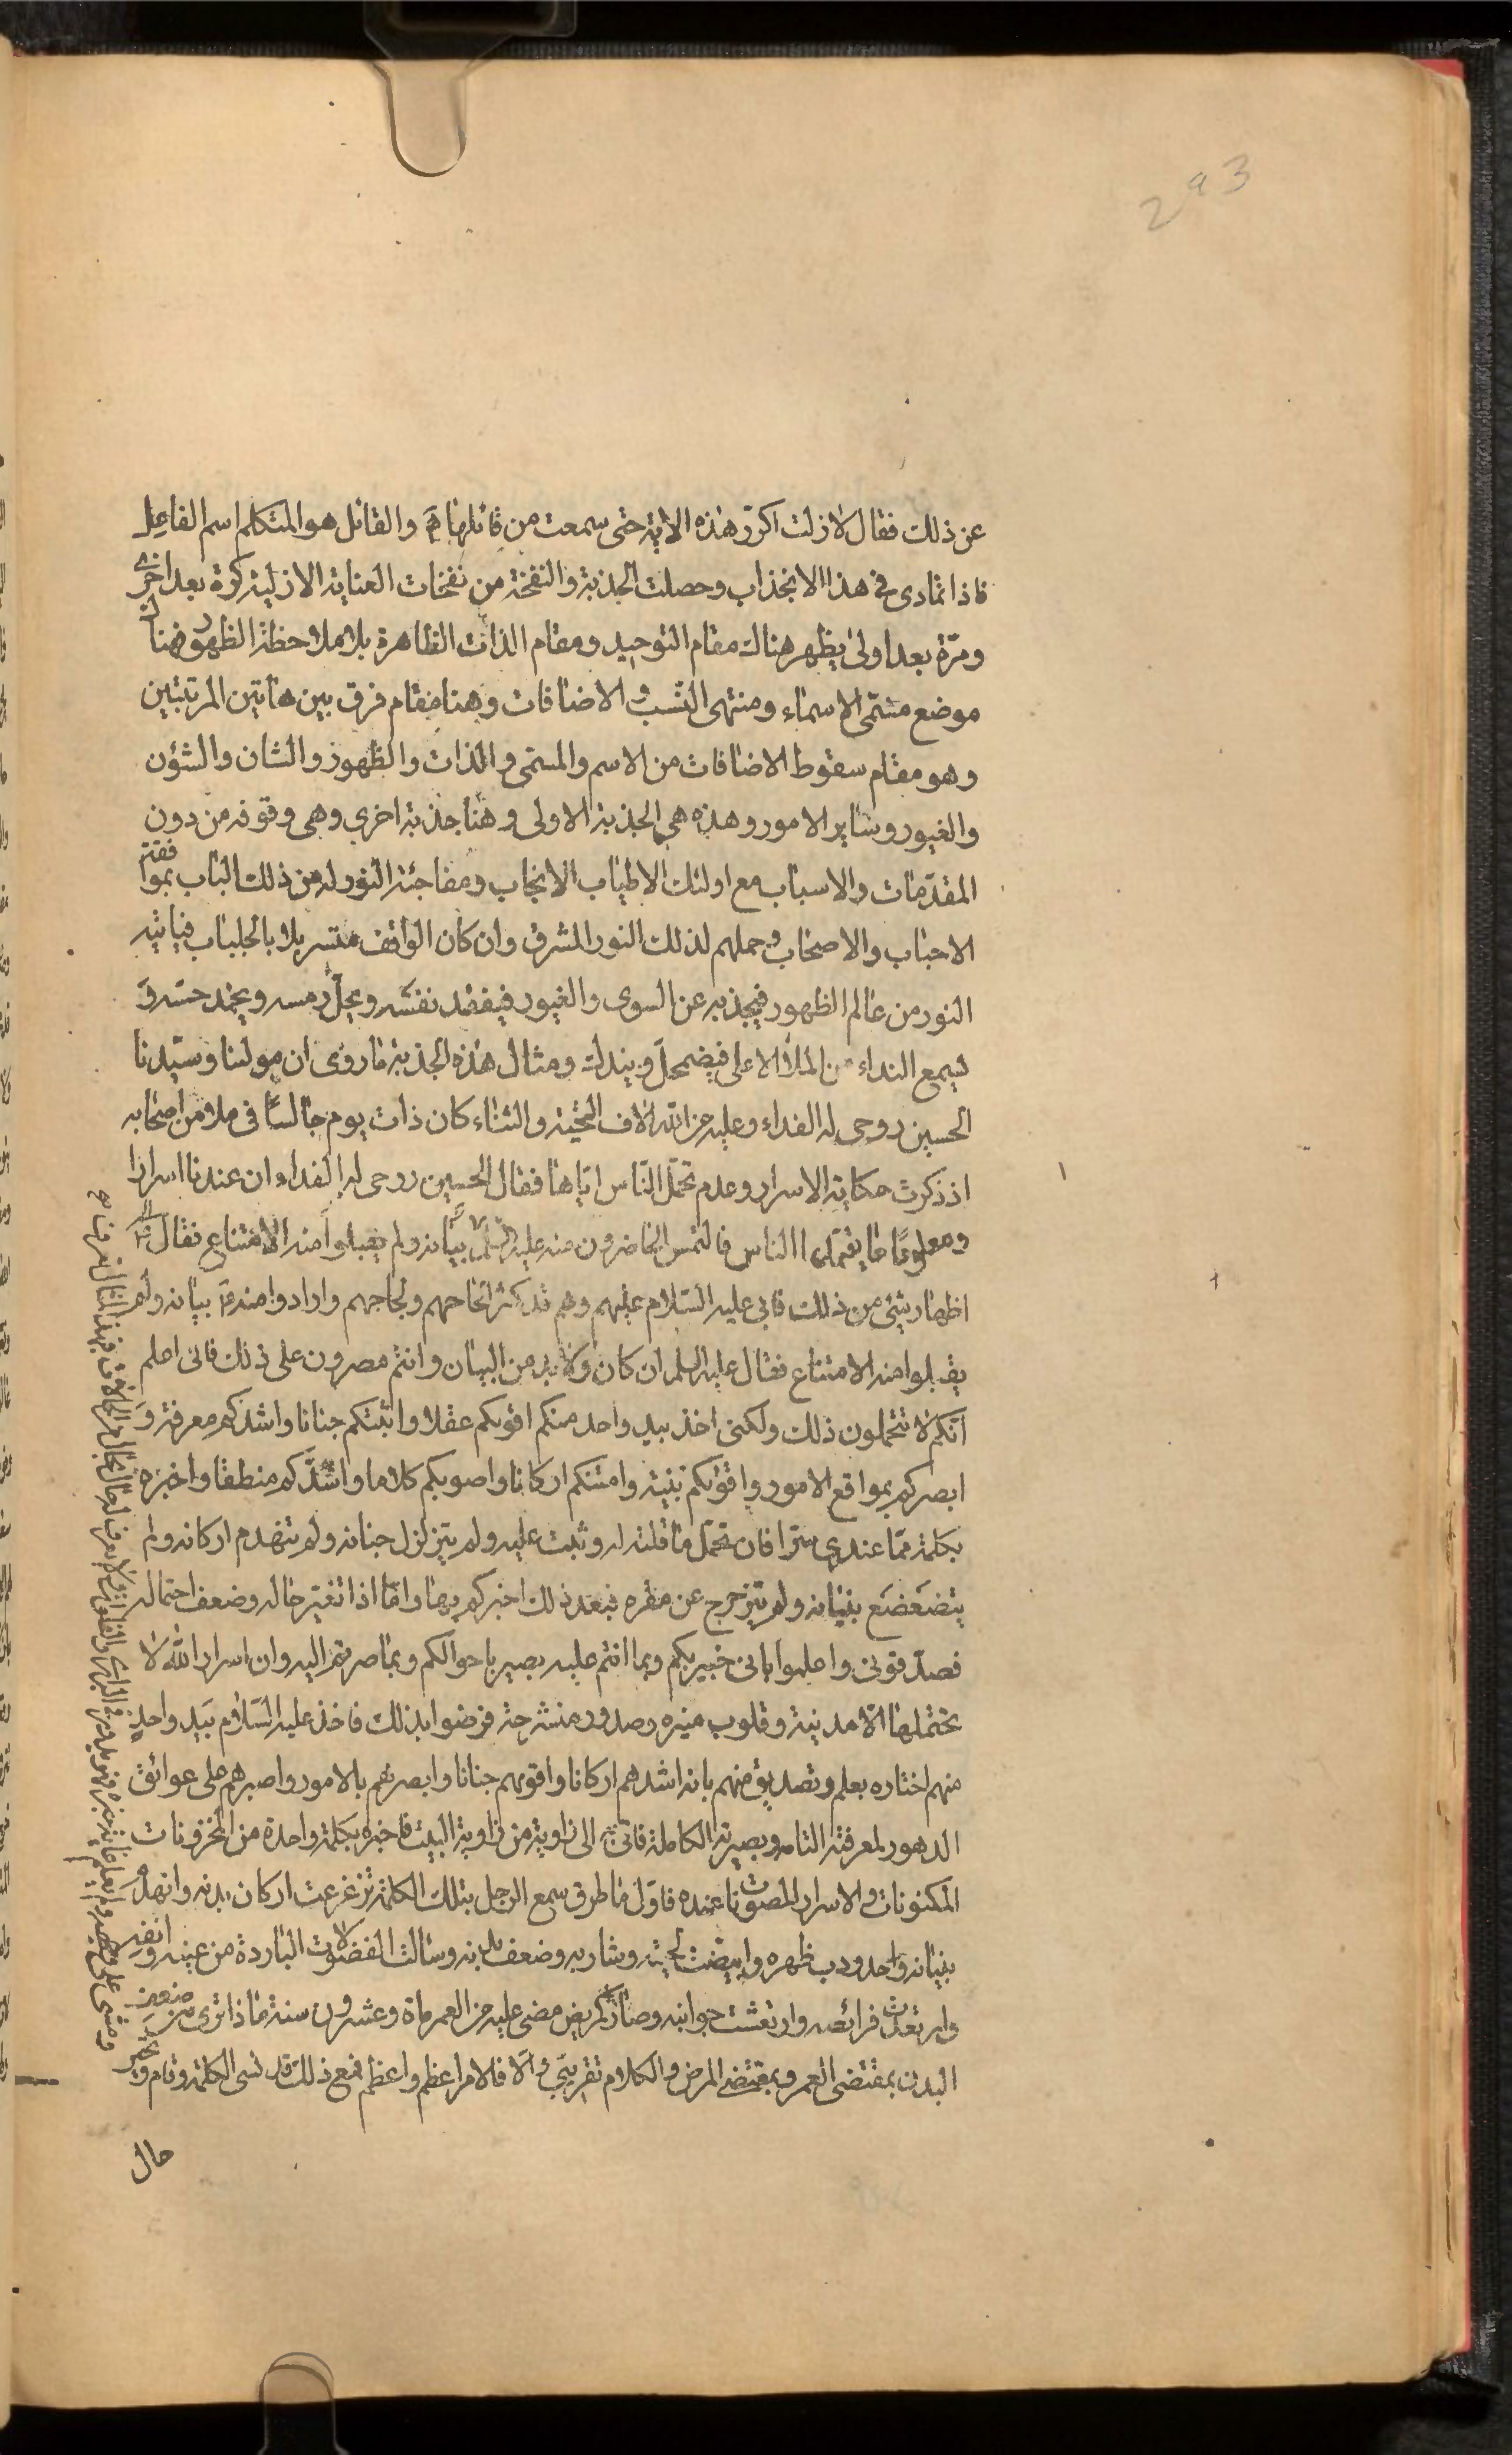 293
عن ذلك فقال لا زلت اكرر هذه الاية حتى سمعت من قائلها والقائل هو المتكلم اسم الفاعل
فاذا تمادى فى هذا الانجذاب وحصلت الجذبة والنفخة من نفخات العناية الازلية كرة بعد اخرى
ومرة بعد اولى يظهر هناك مقام التوحيد ومقام الذات الظاهرة بلا ملاحظة الظهور فهنا
موضع مسمى الاسماء ومنتهى النسب والاضافات وهنا مقام فرق بين هاتين المرتبتين
وهو مقام سقوط الاضافات من الاسم والمسمى والذات والظهور والشان والشؤن
والغيور وساير الامور وهذه هى الجذبة الاولى وهنا جذبة اخرى وهى وقوفه من دون
المقدمات والاسباب مع اولئك الاطياب الانجاب ومفاجئة النور له من ذلك الباب
الاحباب والاصحاب وحملهم لذلك النور المشرق وان كان الواقف متسربلا بالجلباب فياتيه
النور من عالم الظهور فيجذبه عن السوى والغيور فيفقد نفسه ويحل رمسه ويخمد حسه و
ليسمع النداء من الملأ الاعلى فيضمحل ويندك ومثال هذه الجذبة ما روى ان مولينا وسيدنا
الحسين روحى له الفداء وعليه من الله الاف التحية والثناء كان ذات يوم جالسا فى ملاء من اصحابه
اذ ذكرت حكاية الاسرار وعدم تحمل الناس اياها فقال الحسين روحى له الفداء ان عندنا اسرارا
وعلوما ما يتحملها الناس فالتمس الحاضرون منه عليه السلام بيانه ولم يقبلوا منه الامتناع فقال
اظهار شئ من ذلك فابى عليه السلام عليهم وهم قد كثر الحاحهم ولجاجهم وارادوا منه بيانه ولم
يقبلوا منه الامتناع فقال عليه السلم ان كان ولا بد من البيان وانتم مصرون على ذلك فانى اعلم
انكم لا تتحملون ذلك ولكنى اخذ بيد واحد منكم اقويكم عقلا واثبتكم جنانا واشدكم معرفة و
ابصركم بمواقع الامور واقويكم بنية وامتنكم اركانا واصوبكم كلاما واشدكم منطقا واخبره
بكلمة مما عندى سرا فان تحمل ما قلته له وثبت عليه ولم يتزلزل جنانه ولم تنهدم اركانه ولم
يتضعضع بنيانه ولم يتزحزح عن مقره فبعد ذلك اخبركم بها واما اذا تغير حاله وضعف احتماله
فصدقونى واعلموا بانى خبير بكم وبما انتم عليه بصير باحوالكم وبما صرتم اليه وان اسرار الله لا
تحتملها الا مدينة وقلوب منيره وصدور منشرحة فرضوا بذلك فاخذ عليه السلام بيد واحد
منهم اختاره بعلم وتصديق منهم بانه اشدهم اركانا واقويهم جنانا وابصرهم بالامور واصبرهم على عوائق
الدهور لمعرفته التامه وبصيرته الكاملة فاتى به الى زاوية من زاوية البيت فاخبره بكلمة واحدة من المخزونات
المكنونات والاسرار المصونات عنده فاول ما طرق سمع الرجل بتلك الكلمة تزعزعت اركان بدنه وانهدم
بنيانه واحدودب ظهره وابيضت لحيته وشاربه وضعف بدنه وسالت الفضولات الباردة من عينيه وانفه
وارتعدت فرائصه وارتعشت جوانبه وصار كمريض مضى عليه من العمر مأة وعشرون سنة فماذا ترى من ضعف
البدن بمقتضى العمر وبمقتضى المرض والكلام تقريبى والا فالامر اعظم واعظم فمع ذلك قد نسى الكلمة وقام و
حال